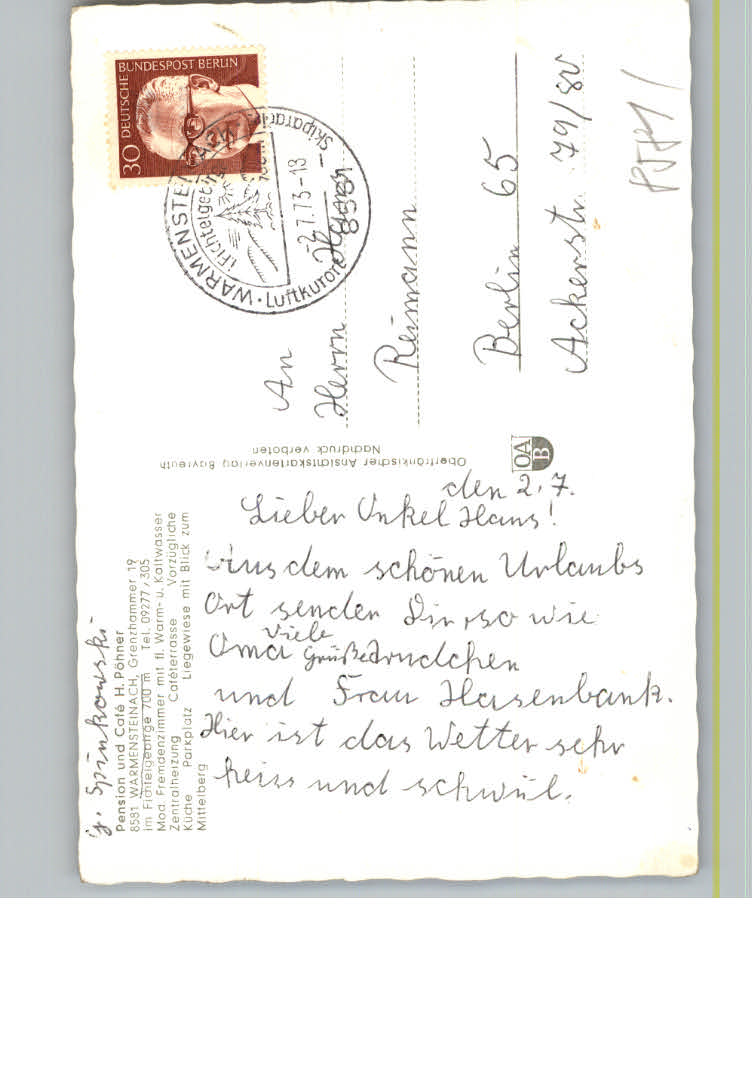 y. Spinkowski
Pension und Café H. Pöhner
8581 WARMENSTEINACH, Grenzhammer 19
im Fichtelgebirge 700 m Tel. 09277/305
Mod. Fremdenzimmer mit fl. Warm- u. Kaltwasser
Zentralheizung Caféterrasse Vorzügliche
Küche Parkplatz Liegewiese mit Blick zum
Mittelberg
den 2.7.
Lieber Onkel Hans!
Aus dem schönen Urlaubs
Ort senden Dir, so wie
Oma viele Grüße Trudchen
und Frau Hasenbank.
Hier ist das Wetter sehr
heiss und schwül.
Oberfränkischer Ansichtskartenverlag Bayreuth
Nachdruck verboten
OA
B
DEUTSCHE BUNDESPOST BERLIN
30
WARMENSTEINACH
Fichtelgebirge
-2.7.73-13
8581
Luftkurort
Skiparadies
An
Herrn Hans
Reimann
Berlin 65
Ackerstr. 79/80